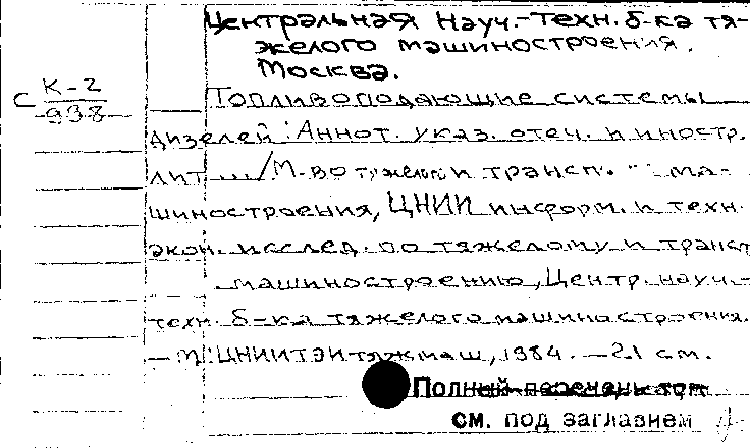 Центральная науч.-техн. б-ка тя-
желого машиностроения.
Москва.
С К-2
938
Топливоподающие системы
дизелей: Аннот. указ. отеч. и иностр.
лит ... / М-во тяжелого и трансп. ма-
шиностроения, ЦНИИ информ. и техн.
экон. исслед. по тяжелому и трансп
машиностроению, Центр. науч.-
техн. б-ка тяжелого машиностроения.
— М: ЦНИИТЭИтяжмаш, 1984. — 21 см.
Полный перечень
см. под заглавием